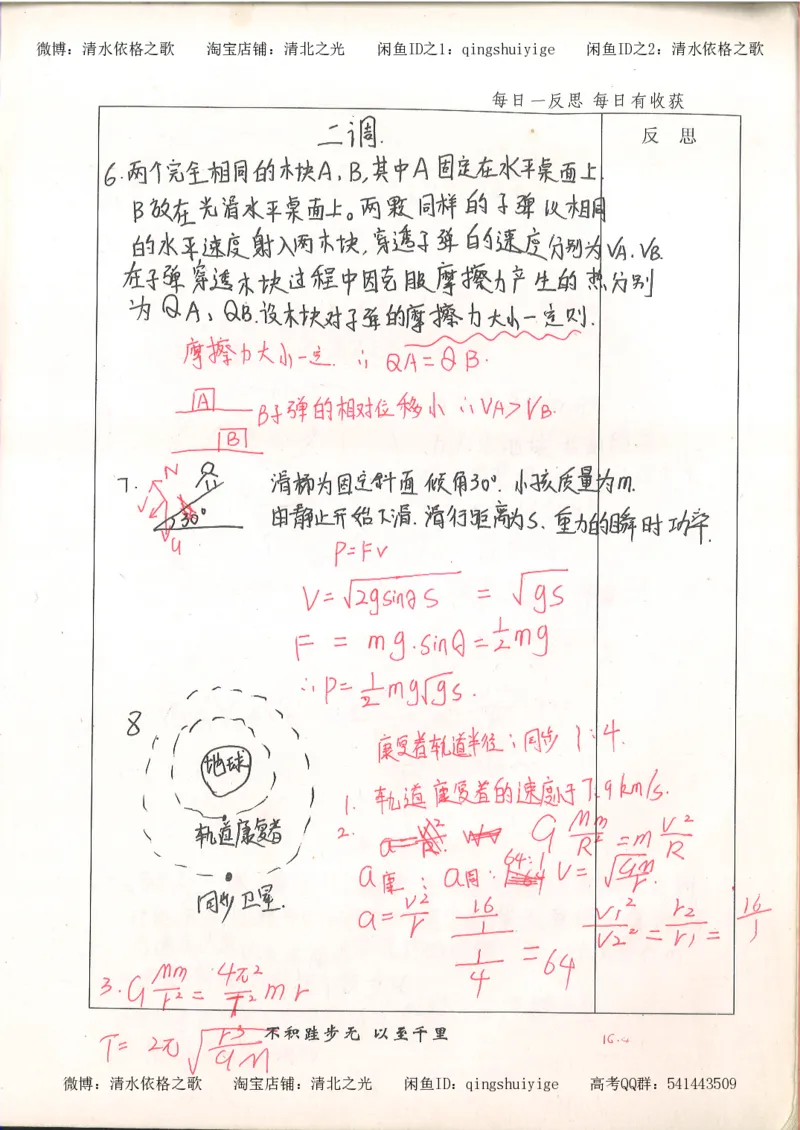 微博：清水依格之歌 淘宝店铺：清北之光 闲鱼ID之1：qingshuiyige 闲鱼ID之2：清水依格之歌
每日一反思 每日有收获
反 思
二调.
6.两个完全相同的木块A,B,其中A固定在水平桌面上.
B放在光滑水平桌面上。两颗同样的子弹以相同
的水平速度射入两木块,穿透子弹的速度分别为VA.VB.
在子弹穿透木块过程中因克服摩擦力产生的热分别
为QA、QB.设木块对子弹的摩擦力大小一定则.
摩擦力大小一定 ∴ QA=QB.
A
B子弹的相对位移小 ∴VA>VB.
B
7.
N
30°
G
滑梯为固定斜面 倾角30°. 小孩质量为m.
由静止开始下滑.滑行距离为s.重力的瞬时功率.
P=Fv
V=√2gsinθs = √gs
F = mg.sinθ=1/2mg
∴P=1/2mg√gs.
8
地球
轨道康复者
同步卫星.
康复者轨道半径：同步 1:4.
1. 轨道康复者的速度小于7.9km/s.
2. G Mm/R² =m V²/R
a康：a同：64:1 V=√GM/r.
a=V²/r 16/1 / 1/4 =64 V1²/V2² = r2/r1 = 16/1
3.G Mm/r² = 4π²/T² m r
T= 2π√r³/GM
不积跬步无 以至千里
微博：清水依格之歌 淘宝店铺：清北之光 闲鱼ID：qingshuiyige 高考QQ群：541443509